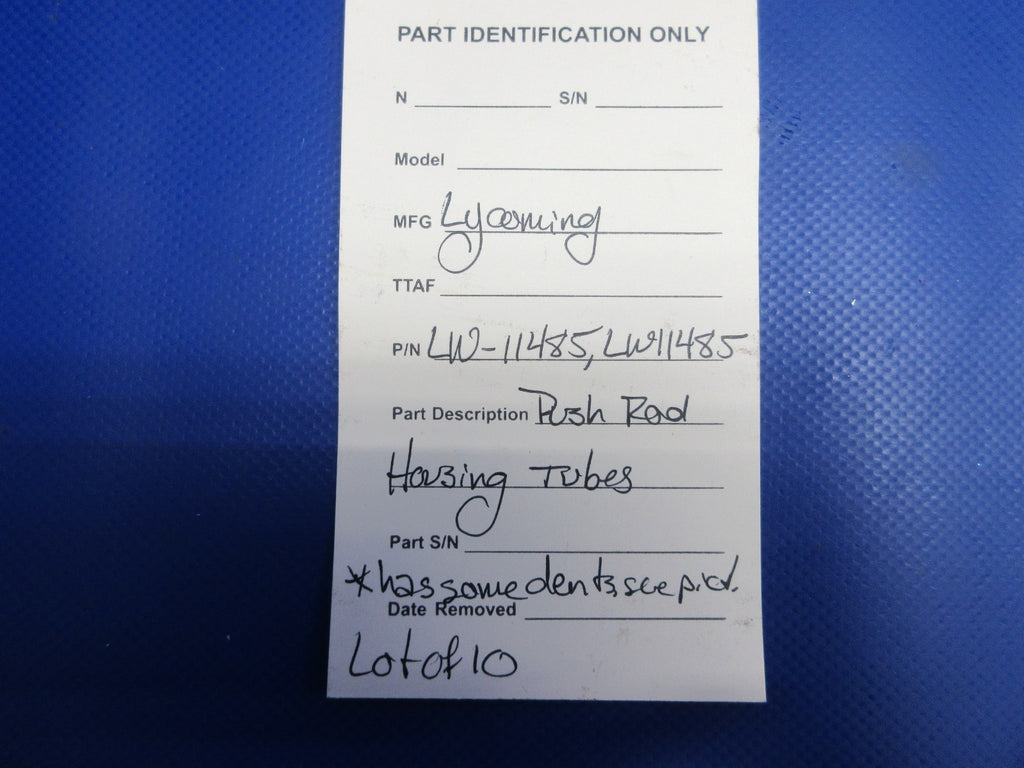 PART IDENTIFICATION ONLY
N S/N
Model
MFG Lycoming
TTAF
P/N LW-11485, LW11485
Part Description Push Rod
Housing Tubes
Part S/N
*has some dents, see pic.
Date Removed
Lot of 10